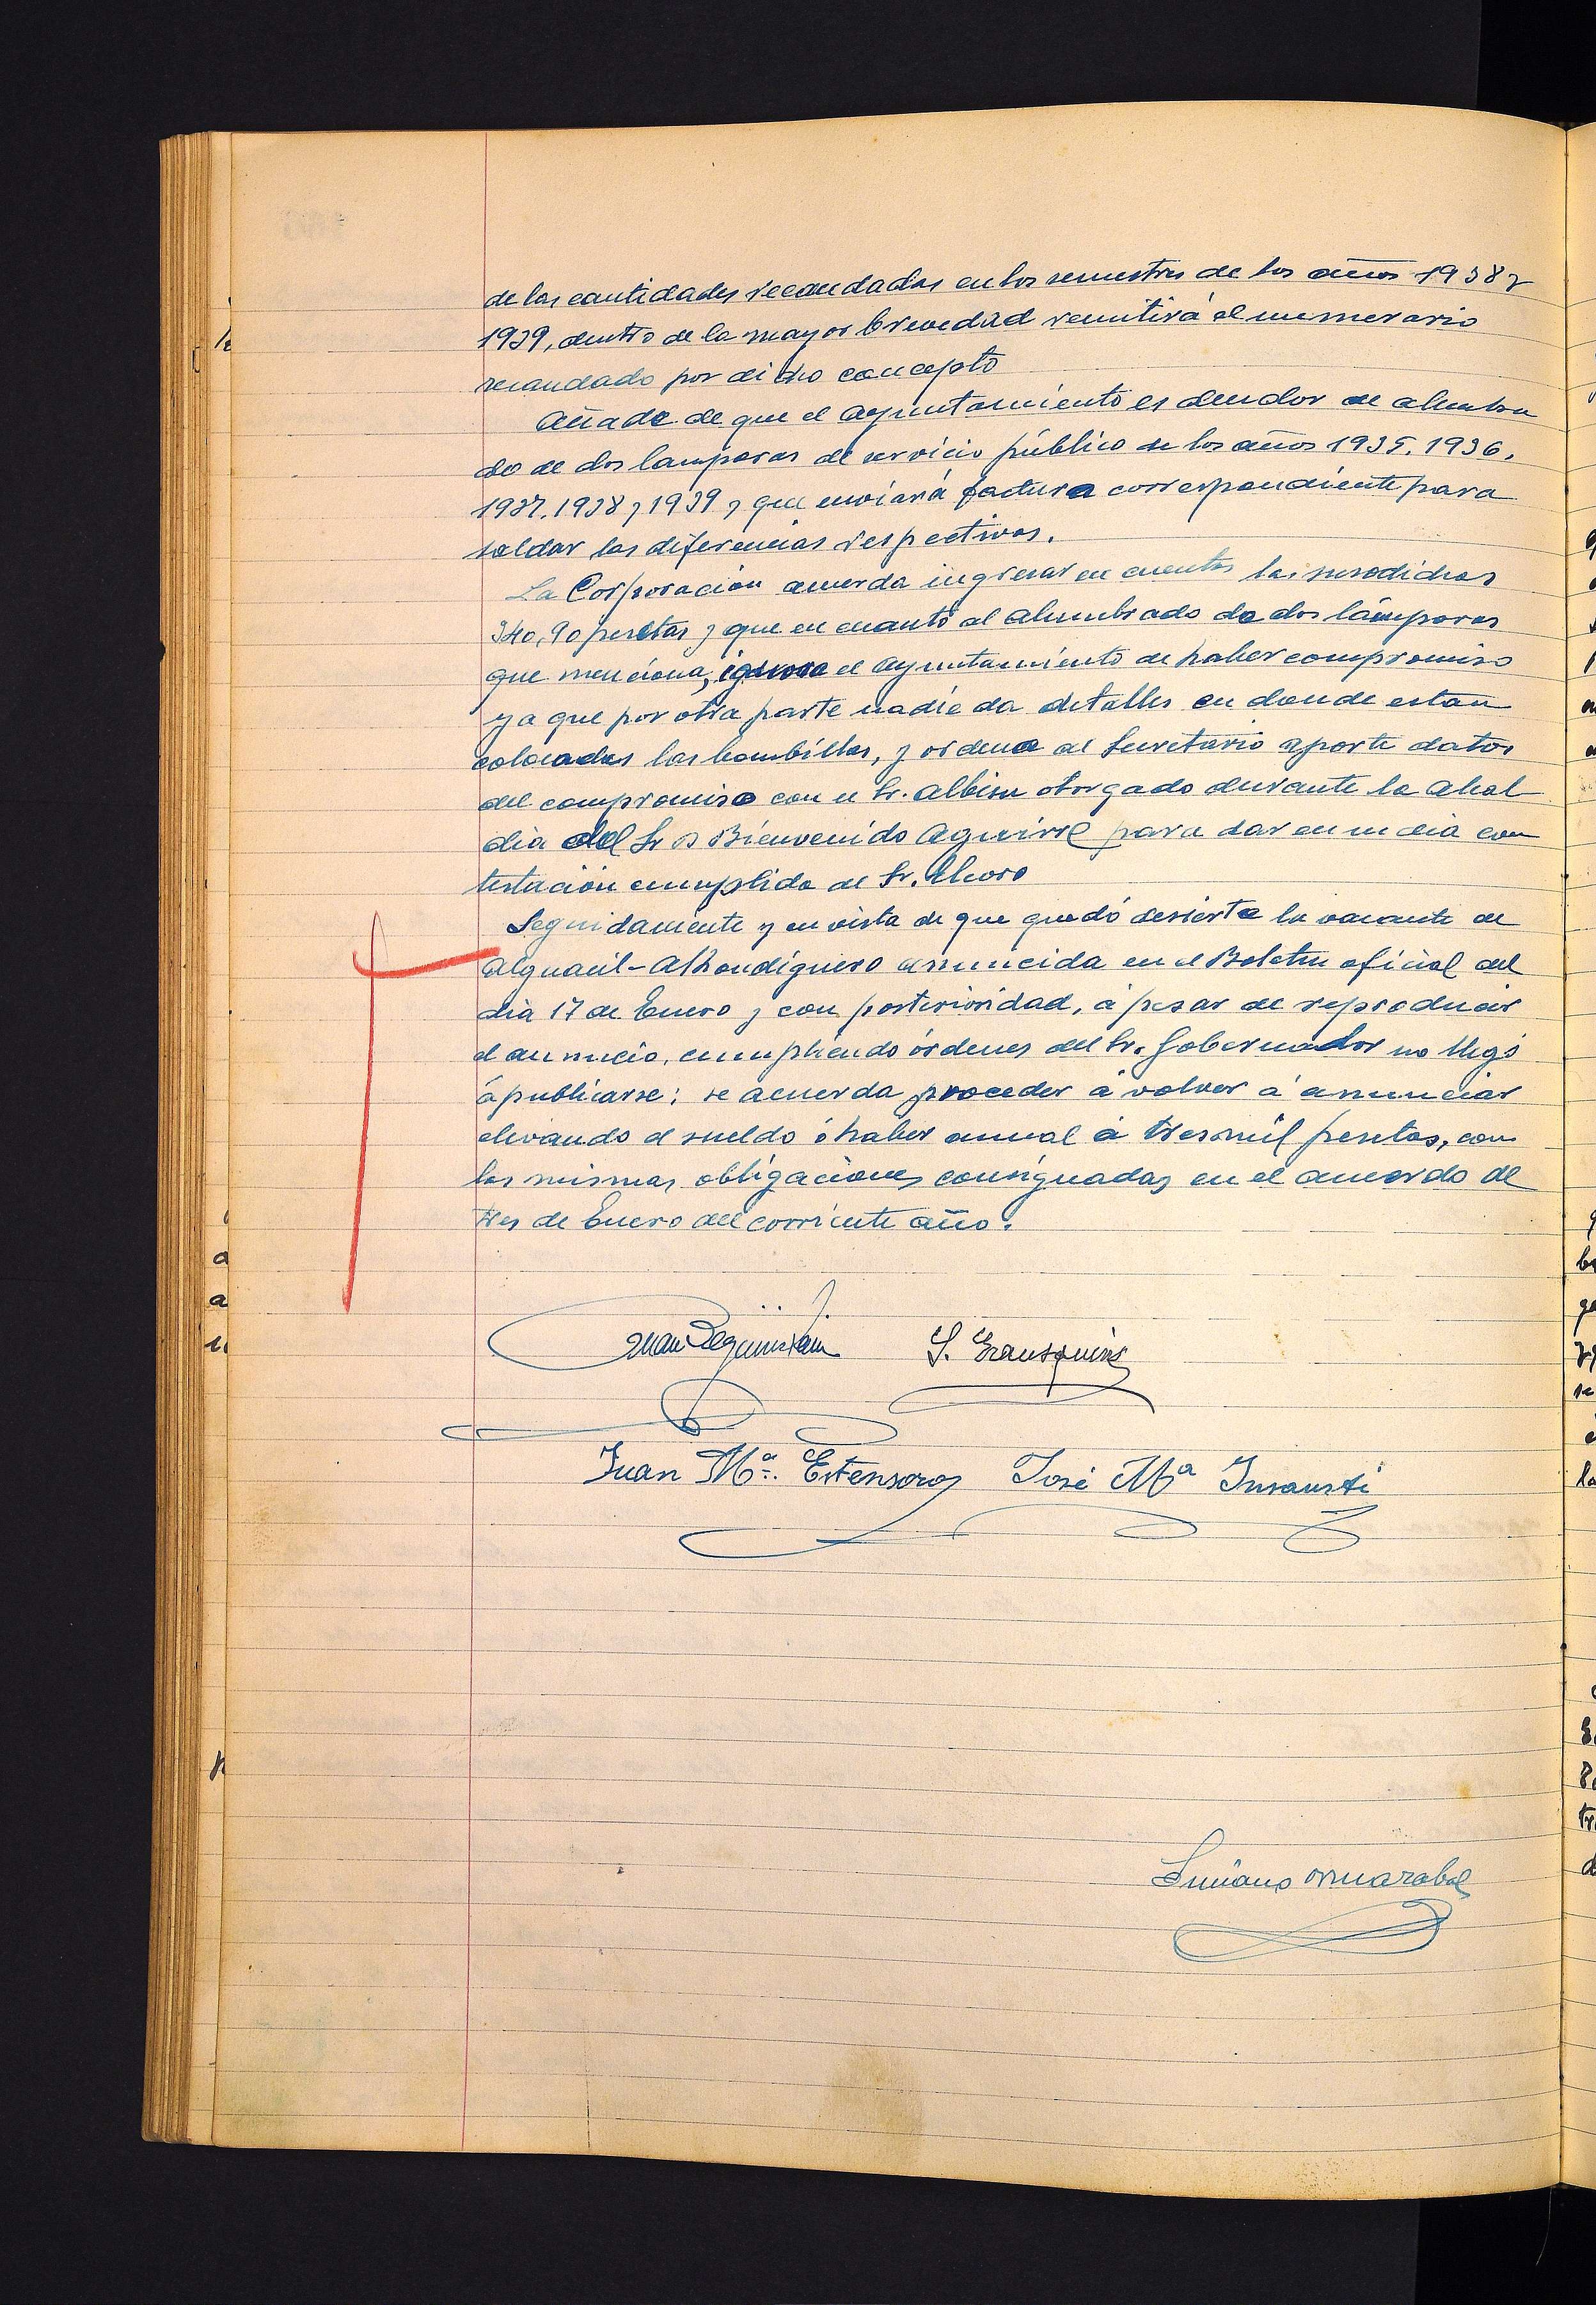 de las cantidades recaudadas en los semestres de los años 1938 y
1939, dentro de la mayor brevedad remitirá el numerario
recaudado por dicho concepto
Añade de que el Ayuntamiento es deudor de alumbra
do de dos lamparas de servicio público de los años 1935, 1936,
1937, 1938 y 1939 y que enviará factura correspondiente para
saldar las diferencias respectivas.
La Corporación acuerda ingresar en cuentas las susodichas
340,90 pesetas y que en cuanto al alumbrado de dos lámparas
que menciona, ignora el Ayuntamiento de haber compromiso
ya que por otra parte nadie da detalles en donde estan
colocadas las bombillas, y ordena al Secretario aporte datos
del compromiso con el Sr. Albisu otorgado durante la Alcal
dia del Sr D Bienvenido Aguirre para dar en su dia con
testación cumplida al Sr.
Seguidamente y en vista de que quedó desierta la vacante de
Alguacil-Alhondiguero anuncida en el Boletin oficial del
dia 17 de Enero y con posterioridad, á pesar de reproducir
el anuncio, cumpliendo órdenes del Sr. Gobernador no llegó
á publicarse; se acuerda proceder á volver á anunciar
elevando el sueldo ó haber anual á tres mil pesetas, con
las mismas obligaciones consignadas en el acuerdo de
tres de Enero del corriente año.
Juan Beguiristain S. Irausquin
Juan Mª. Estensoro José Mª Insausti
Luciano